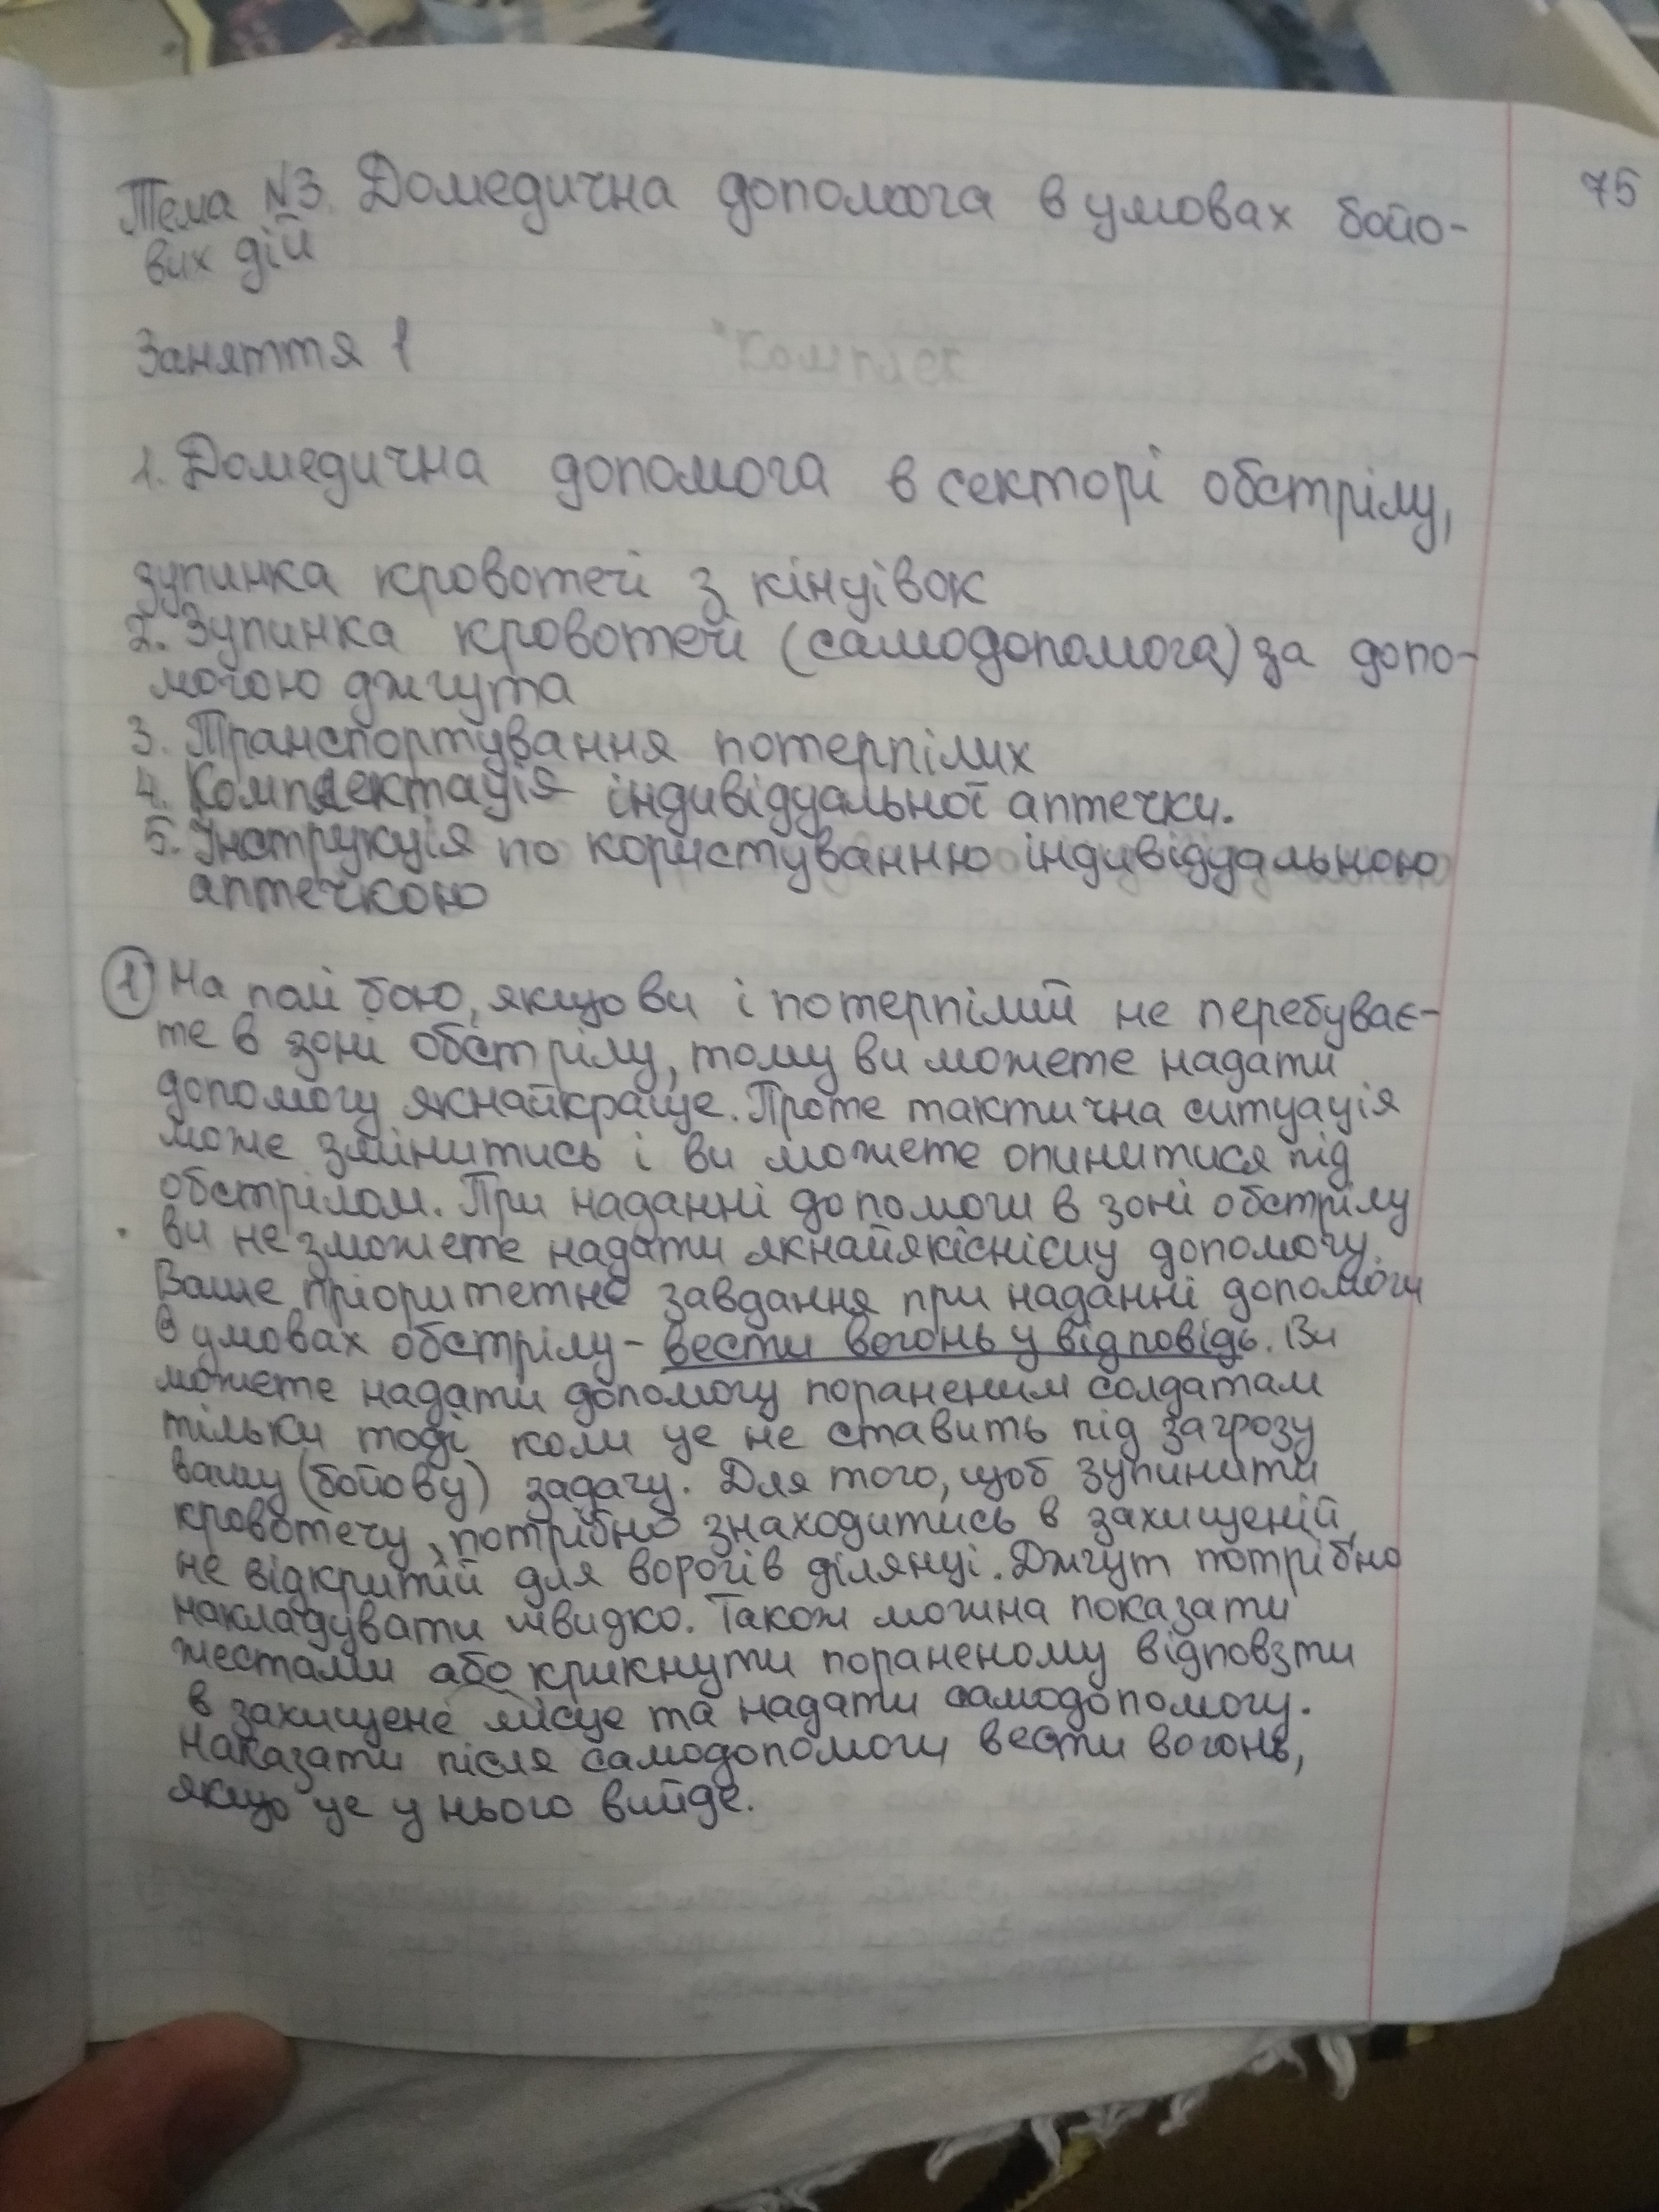 75
Тема №3. Домедична допомога в умовах бойо-
вих дій
Заняття 1
"Комплек
1. Домедична допомога в секторі обстрілу,
зупинка кровотечі з кінцівок
2. Зупинка кровотечі (самодопомога) за допо-
могою джгута
3. Транспортування потерпілих
4. Комплектація індивідуальної аптечки.
5. Інструкція по користуванню індивідуальною
аптечкою
1 На полі бою, якщо ви і потерпілий не перебуває-
те в зоні обстрілу, тому ви можете надати
допомогу якнайкраще. Проте тактична ситуація
може змінитись і ви можете опинитися під
обстрілом. При наданні допомоги в зоні обстрілу
ви не зможете надати якнайякіснішу допомогу.
Ваше пріоритетне завдання при наданні допомоги
в умовах обстрілу - вести вогонь у відповідь. Ви
можете надати допомогу пораненим солдатам
тільки тоді коли це не ставить під загрозу
вашу (бойову) задачу. Для того, щоб зупинити
кровотечу, потрібно знаходитись в захищеній,
не відкритій для ворогів ділянці. Джгут потрібно
накладувати швидко. Також можна показати
жестами або крикнути пораненому відповзти
в захищене місце та надати самодопомогу.
Наказати після самодопомоги вести вогонь,
якщо це у нього вийде.